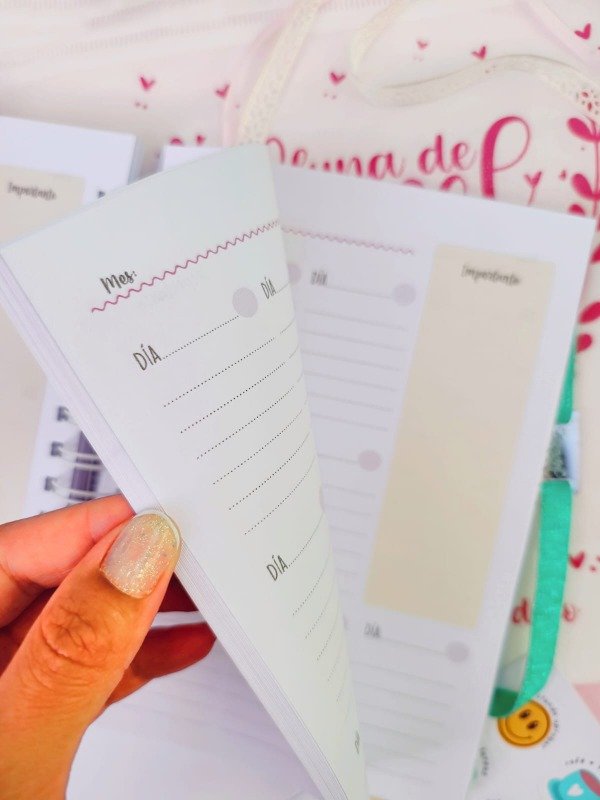 Importante
Reyna de
Mes:
DÍA
DÍA
DÍA
DÍA
Importante
DÍA